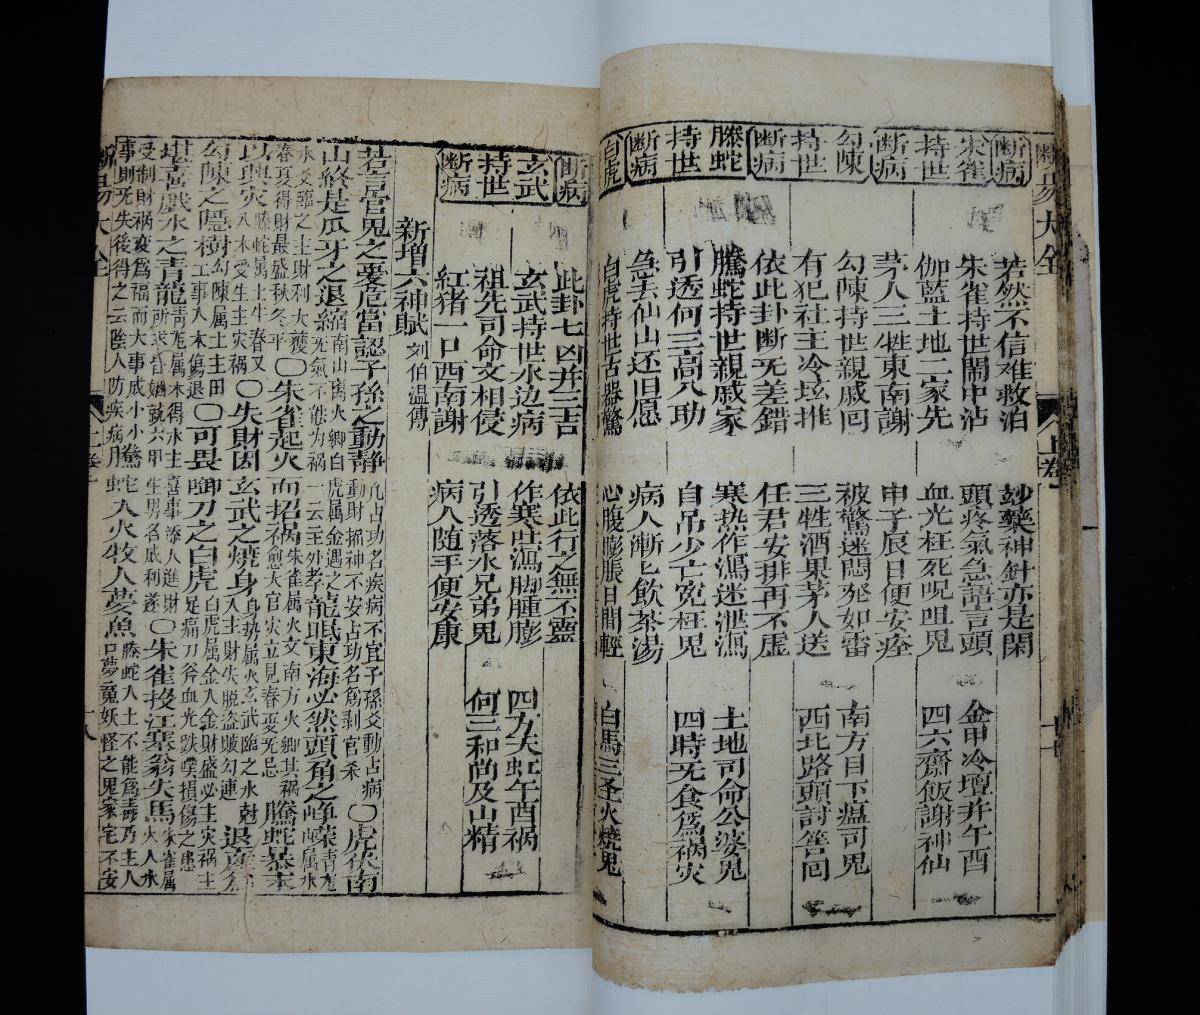 断易大全
上卷
断病
若然不信难救泊
妙藥神針亦是閑
朱雀
朱雀持世鬧中沾
頭疼氣急譫言頭
金甲冷壇井午酉
持世
伽藍土地二家先
血光枉死呪咀鬼
四六齋飯謝神仙
断病
茅人三牲東南謝
申子辰日便安痊
勾陳
勾陳持世親戚回
被驚迷悶発如雷
南方目下瘟司鬼
持世
有犯社主冷坛推
三牲酒果茅人送
西北路頭討筶回
断病
依此卦断无差錯
任君安排再不虚
騰蛇
騰蛇持世親戚家
寒热作瀉迷泄瀉
土地司命公婆鬼
持世
引透何三高八助
自吊少亡冤枉鬼
四時无食爲祸灾
断病
急去仙山还旧愿
病人漸上飲茶湯
白虎
白虎持世古器驚
心腹膨脹日間輕
白馬三圣火燒鬼
断病
此卦七凶并三吉
依此行之無不靈
玄武
玄武持世水边病
作寒吐瀉脚腫膨
四九天虹午酉祸
持世
祖先司命文相侵
引透落水兄弟鬼
何三和尚及山精
断病
紅猪一口西南謝
病人随手便安康
新增六神賦 刘伯温傳
若言官鬼之憂危當認子孫之動静 凡占功名疾病不宜子孫爻動占病動財摇神不安占功名爲剥官杀 〇虎伏南
山終是瓜牙之退縮 南山离火卿白虎属金遇之死氣不能为祸一云主外孝 龍眠東海必然頭角之峥嶸 青龙属水
水爻辞之主財利大獲春夏得財最盛秋冬平 〇朱雀起火而招祸 朱雀属火文南方火卿其祸不愈大官灾立見春夏无忌 騰蛇暴木
以興灾 騰蛇属土牛春又八木受生主灾祸 〇失財因玄武之燒身 身势属火玄武臨之水入主財失脱盗贼勾連 尅退
勾陳之隱樹 勾陳属土主田工事入木傷退 〇可畏啣刀之白虎 白虎属金入金財盛必主灾祸主足痛刀斧血光跌噗損傷之患
堪喜戲水之青龍 青龙属木得水主喜事添人進財 〇朱雀投江塞翁失馬 朱雀属火入水
受制財祸変爲福而大事威小小事則无失後得之云陰人防疾病 騰蛇入火牧人夢魚 騰蛇入土不不能爲毒乃主人口夢寃妖怪之鬼家宅不安
断易大全
上卷
十八